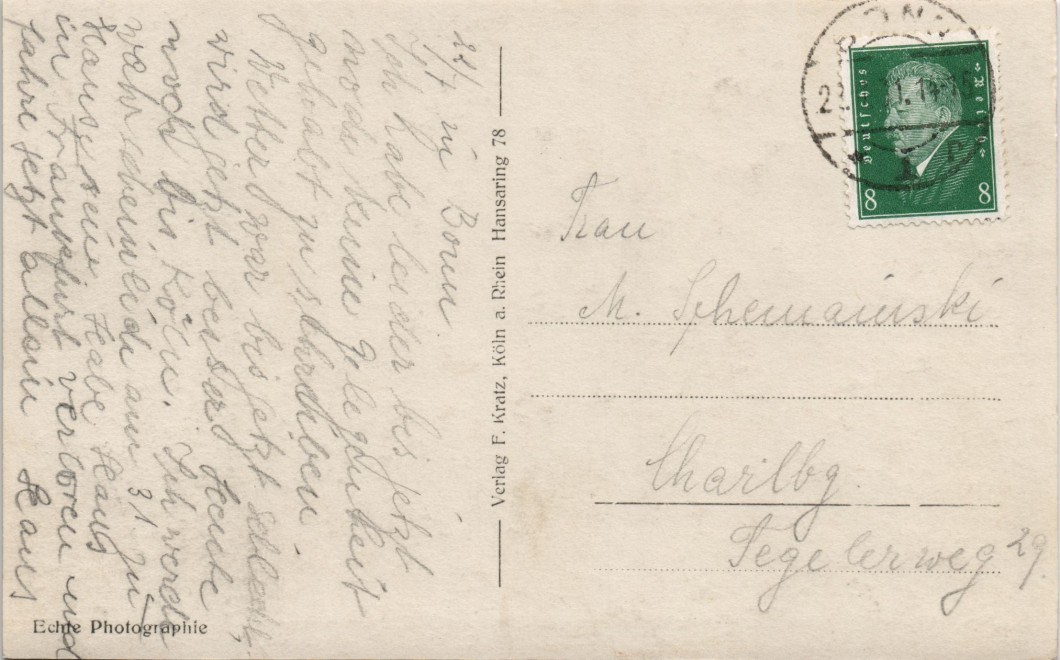 22/7 in Bonn.
Ich habe leider bis jetzt
noch keine Gelegenheit
gehabt zu schreiben
Wetter war bis jetzt schlecht,
wird jetzt besser. Heute
noch bis Köln. Ich werde
wahrscheinlich am 31 zu
Hause sein. Habe Hans
in Frankfurt verloren und
fahre jetzt allein Hans
Echte Photographie
Verlag F. Kratz, Köln a. Rhein Hansaring 78
BONN
Deutsches Reich
8 8
Frau
M. Schemainski
Charlbg.
Tegelerweg 29.